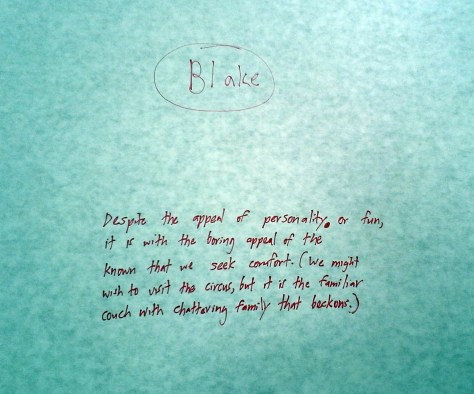 Blake
Despite the appeal of personality, or fun,
it is with the boring appeal of the
known that we seek comfort. (We might
wish to visit the circus, but it is the familiar
couch with chattering family that beckons.)